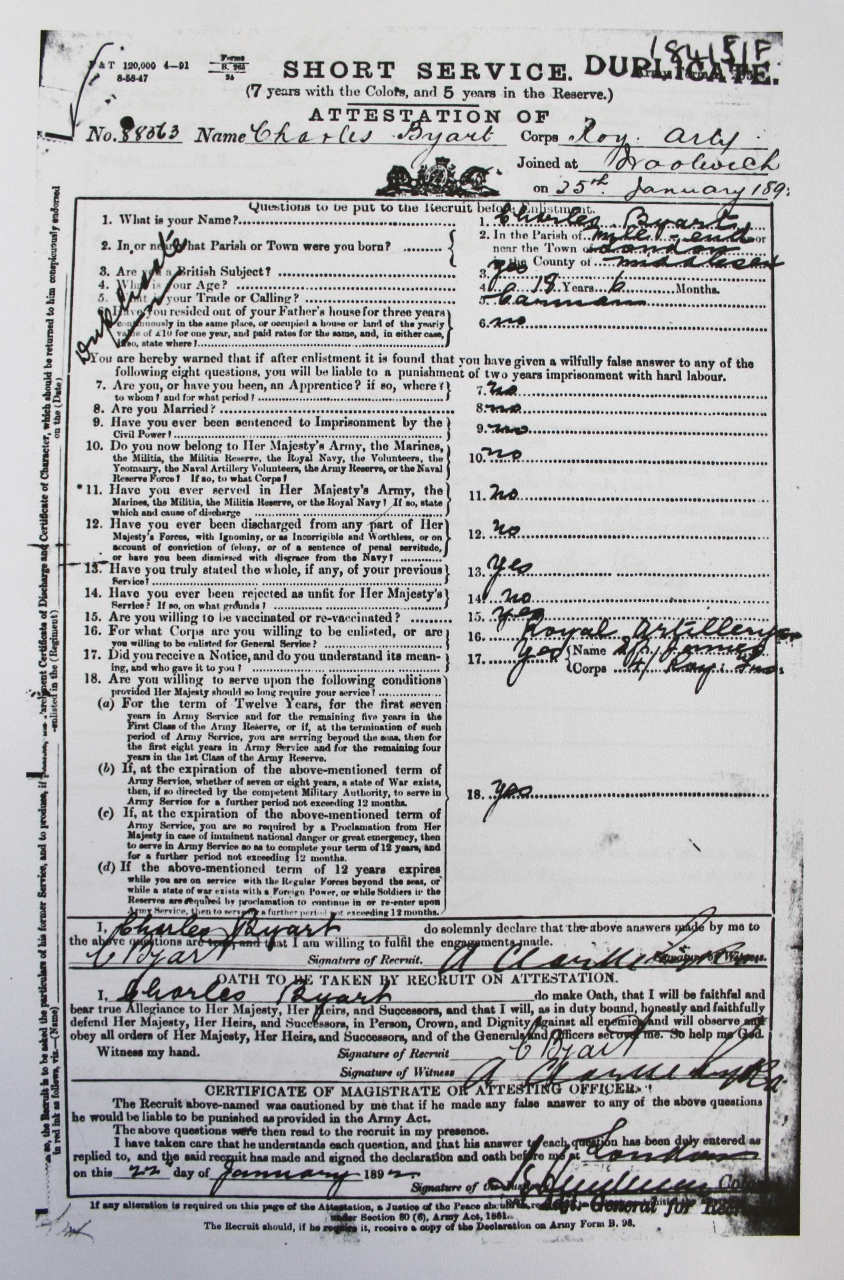 184151F
& T 120,000 4—91 Forms
8-58-47 B. 265
24
SHORT SERVICE. DUPLICATE.
(7 years with the Colors, and 5 years in the Reserve.)
ATTESTATION OF
No. 88563 Name Charles Byart Corps Roy. Arty
Joined at Woolwich
on 25th January 189
Questions to be put to the Recruit before Enlistment.
1. What is your Name? 1. Charles Byart
2. In or near what Parish or Town were you born? 2. In the Parish of Mile End or
near the Town of London
the County of Middlesex
3. Are you a British Subject? 3. yes
4. What is your Age? 4. 18 Years 6 Months.
5. What is your Trade or Calling? 5. Carman
Duplicate
6. Have you resided out of your Father's house for three years 6. no
continuously in the same place, or occupied a house or land of the yearly
value of £10 for one year, and paid rates for the same, and, in either case,
if so, state where?
You are hereby warned that if after enlistment it is found that you have given a wilfully false answer to any of the
following eight questions, you will be liable to a punishment of two years imprisonment with hard labour.
7. Are you, or have you been, an Apprentice? if so, where? 7. no
to whom? and for what period?
8. Are you Married? 8. no
9. Have you ever been sentenced to Imprisonment by the 9. no
Civil Power?
10. Do you now belong to Her Majesty's Army, the Marines, 10. no
the Militia, the Militia Reserve, the Royal Navy, the Volunteers, the
Yeomanry, the Naval Artillery Volunteers, the Army Reserve, or the Naval
Reserve Force? If so, to what Corps?
*11. Have you ever served in Her Majesty's Army, the 11. no
Marines, the Militia, the Militia Reserve, or the Royal Navy? If so, state
which and cause of discharge
12. Have you ever been discharged from any part of Her 12. no
Majesty's Forces, with Ignominy, or as Incorrigible and Worthless, or on
account of conviction of felony, or of a sentence of penal servitude,
or have you been dismissed with disgrace from the Navy?
13. Have you truly stated the whole, if any, of your previous 13. yes
Service?
14. Have you ever been rejected as unfit for Her Majesty's 14. no
Service? If so, on what grounds?
15. Are you willing to be vaccinated or re-vaccinated? 15. yes
16. For what Corps are you willing to be enlisted, or are 16. Royal Artillery
you willing to be enlisted for General Service?
17. Did you receive a Notice, and do you understand its mean- 17. yes Name
ing, and who gave it to you? Corps
18. Are you willing to serve upon the following conditions
provided Her Majesty should so long require your service?
(a) For the term of Twelve Years, for the first seven
years in Army Service and for the remaining five years in the
First Class of the Army Reserve, or if, at the termination of such
period of Army Service, you are serving beyond the seas, then for
the first eight years in Army Service and for the remaining four
years in the 1st Class of the Army Reserve.
(b) If, at the expiration of the above-mentioned term of
Army Service, whether of seven or eight years, a state of War exists, 18. yes
then, if so directed by the competent Military Authority, to serve in
Army Service for a further period not exceeding 12 months.
(c) If, at the expiration of the above-mentioned term of
Army Service, you are so required by a Proclamation from Her
Majesty in case of imminent national danger or great emergency, then
to serve in Army Service so as to complete your term of 12 years, and
for a further period not exceeding 12 months.
(d) If the above-mentioned term of 12 years expires
while you are on service with the Regular Forces beyond the seas, or
while a state of war exists with a Foreign Power, or while Soldiers in the
Reserves are required by proclamation to continue in or re-enter upon
Army Service, then to serve for a further period not exceeding 12 months.
I, Charles Byart do solemnly declare that the above answers made by me to
the above questions are true, and that I am willing to fulfil the engagements made.
C Byart Signature of Recruit. Signature of Witness.
OATH TO BE TAKEN BY RECRUIT ON ATTESTATION.
I, Charles Byart do make Oath, that I will be faithful and
bear true Allegiance to Her Majesty, Her Heirs, and Successors, and that I will, as in duty bound, honestly and faithfully
defend Her Majesty, Her Heirs, and Successors, in Person, Crown, and Dignity against all enemies, and will observe and
obey all orders of Her Majesty, Her Heirs, and Successors, and of the Generals and Officers set over me. So help me God.
Witness my hand. Signature of Recruit C Byart
Signature of Witness
CERTIFICATE OF MAGISTRATE OR ATTESTING OFFICER.
The Recruit above-named was cautioned by me that if he made any false answer to any of the above questions
he would be liable to be punished as provided in the Army Act.
The above questions were then read to the recruit in my presence.
I have taken care that he understands each question, and that his answer to each question has been duly entered as
replied to, and the said recruit has made and signed the declaration and oath before me at London
on this 22nd day of January 1892
Signature of the
Adjt.-General for
If any alteration is required on this page of the Attestation, a Justice of the Peace should
under Section 80 (6), Army Act, 1881.
The Recruit should, if he require it, receive a copy of the Declaration on Army Form B. 98.
so, the Recruit is to be asked the particulars of his former Service, and to produce, if possible, his Parchment Certificate of Discharge and Certificate of Character, which should be returned to him conspicuously endorsed
in red ink as follows, viz.—(Name) enlisted in the (Regiment) on the (Date)